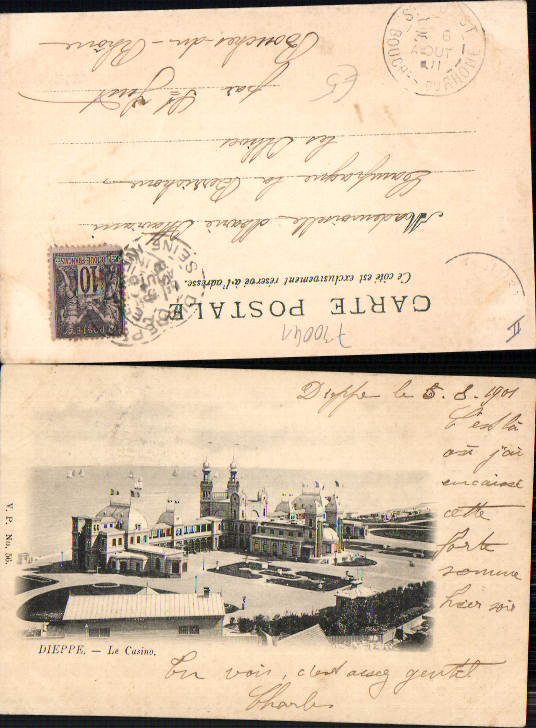 CARTE POSTALE
Ce côté est exclusivement réservé à l'adresse.
Mademoiselle Marie
Campagne la Berrichonne
les Olives
par St Just
Bouches-du-Rhône
10
POSTES
6
AOUT
01
BOUCHES-DU-RHONE
DIEPPE
SEINE
E5
710041
II
Dieppe le 5. 8. 1901
C'est là
où j'ai
encaissé
cette
forte
somme
hier soir
V. P. No. 56.
DIEPPE. — Le Casino.
Tu vois, c'est assez gentil
Charles